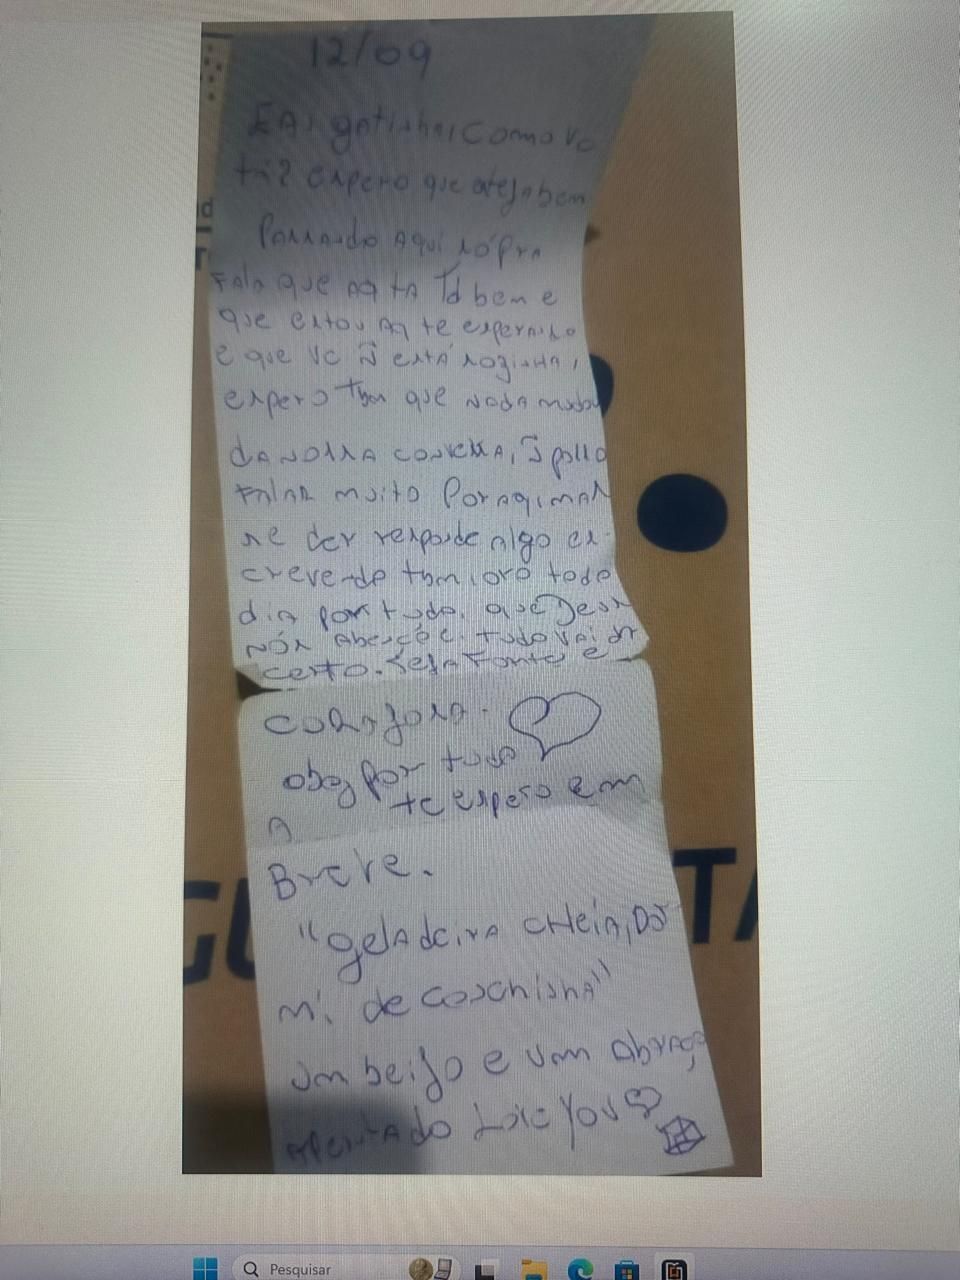 12/09
EAi gatinha, como vc
tá? espero que esteja bem
Passando Aqui só pra
FALA que AQ TA Td bem e
que estou AQ te esperando
e que vc ñ está sozinha,
espero tbm que NADA mudou
DA NOSSA CONVERSA, ñ posso
FALAR muito POR AQUI MAS
se der responde Algo es-
crevendo tbm, oro todo
dia por tudo, que Deus
NÓS Abençõe, tudo VAI DA
certo. Seja Forte e
CORAJOSA.
obg por tudo
te espero em
Breve.
"gelADeirA CHeiA, DOR
Mi De CONCHINHA"
um beijo e um Abraço
APERTADO Love You
GU
TA
d
T
Pesquisar